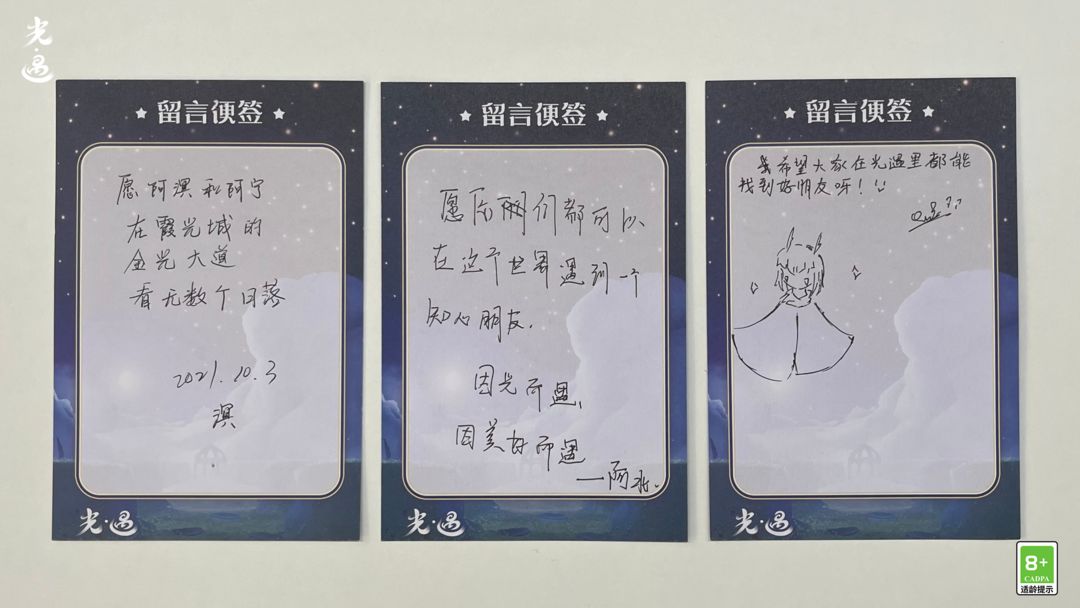 光·遇
留言便签
愿阿溟和阿宁
在霞光城的
金光大道
看无数个日落
2021.10.3
溟
光·遇
留言便签
愿 们都可以
在这个世界遇到一个
知心朋友.
因光而遇,
因美好而遇
光·遇
留言便签
希望大家在光遇里都能
找到好朋友呀!
光·遇
8+
CADPA
适龄提示